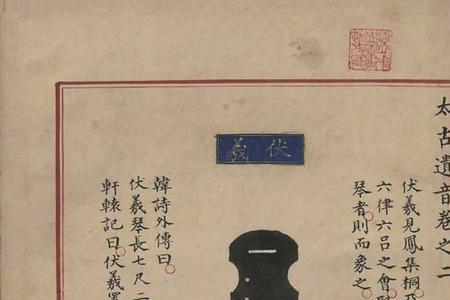 太古遺音卷之二
伏羲見鳳集桐乃
六律六呂之會
琴者則而象之
伏羲
韓詩外傳曰
伏羲琴長七尺二
軒轅記曰伏羲